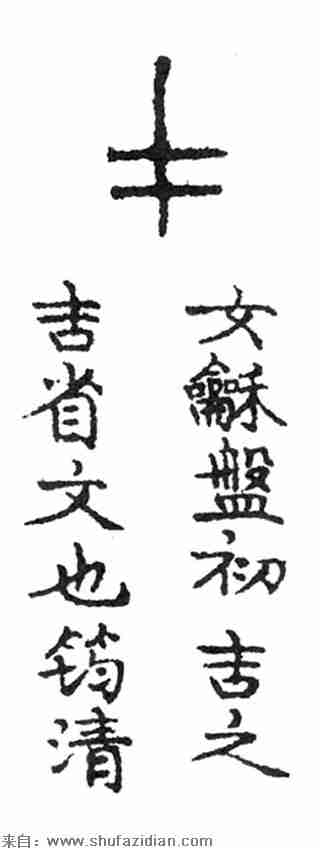 女龢盤初吉之
吉省文也筠清
来自：www.shufazidian.com